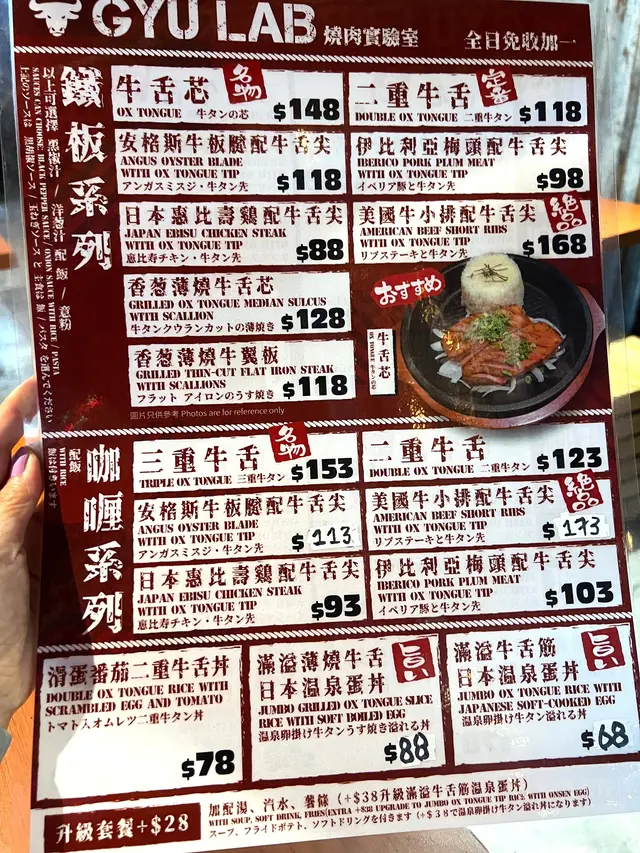 GYU LAB 燒肉實驗室 全日免收加一
鐵板系列
以上可選擇 黑椒汁 / 洋葱汁 配 飯 / 意粉
SAUCES CAN CHOOSE: BLACK PEPPER SAUCE / ONION SAUCE WITH RICE / PASTA
上記のソースは 黒胡椒ソース / 玉ねぎソース と 主食は 飯 / パスタ を選んでください
牛舌芯 名物
OX TONGUE 牛タンの芯 $148
二重牛舌 定番
DOUBLE OX TONGUE 二重牛タン $118
安格斯牛板腱配牛舌尖
ANGUS OYSTER BLADE
WITH OX TONGUE TIP
アンガスミスジ・牛タン先 $118
伊比利亞梅頭配牛舌尖
IBERICO PORK PLUM MEAT
WITH OX TONGUE TIP
イベリア豚と牛タン先 $98
日本惠比壽鷄配牛舌尖
JAPAN EBISU CHICKEN STEAK
WITH OX TONGUE TIP
恵比寿チキン・牛タン先 $88
美國牛小排配牛舌尖 絶品
AMERICAN BEEF SHORT RIBS
WITH OX TONGUE TIP
リブステーキと牛タン先 $168
香葱薄燒牛舌芯
GRILLED OX TONGUE MEDIAN SULCUS
WITH SCALLION
牛タンクウランカットの薄焼き $128
香葱薄燒牛翼板
GRILLED THIN-CUT FLAT IRON STEAK
WITH SCALLIONS
フラット アイロンのうす焼き $118
おすすめ
牛舌芯
OX TONGUE 牛タンの芯
圖片只供參考 Photos are for reference only
咖喱系列
配飯
WITH RICE
飯は付きいます
三重牛舌 名物
TRIPLE OX TONGUE 三重牛タン $153
二重牛舌
DOUBLE OX TONGUE 二重牛タン $123
安格斯牛板腱配牛舌尖
ANGUS OYSTER BLADE
WITH OX TONGUE TIP
アンガスミスジ・牛タン先 $113
美國牛小排配牛舌尖 絶品
AMERICAN BEEF SHORT RIBS
WITH OX TONGUE TIP
リブステーキと牛タン先 $173
日本惠比壽鷄配牛舌尖
JAPAN EBISU CHICKEN STEAK
WITH OX TONGUE TIP
恵比寿チキン・牛タン先 $93
伊比利亞梅頭配牛舌尖
IBERICO PORK PLUM MEAT
WITH OX TONGUE TIP
イベリア豚と牛タン先 $103
滑蛋番茄二重牛舌丼
DOUBLE OX TONGUE RICE WITH
SCRAMBLED EGG AND TOMATO
トマト入オムレツ二重牛タン丼
$78
滿溢薄燒牛舌 旨い
日本温泉蛋丼
JUMBO GRILLED OX TONGUE SLICE
RICE WITH SOFT BOILED EGG
温泉卵掛け牛タンうす焼き溢れる丼
$88
滿溢牛舌筋 旨い
日本温泉蛋丼
JUMBO OX TONGUE RICE WITH
JAPANESE SOFT-COOKED EGG
温泉卵掛け牛タン溢れる丼
$68
升級套餐+$28
加配湯、汽水、薯條（+$38升級滿溢牛舌筋温泉蛋丼）
WITH SOUP, SOFT DRINK, FRIES(EXTRA +$38 UPGRADE TO JUMBO OX TONGUE TIP RICE WITH ONSEN EGG)
スープ、フライドポテト、ソフトドリングを付きます（+＄３８で温泉卵掛け牛タン溢れ丼になります）